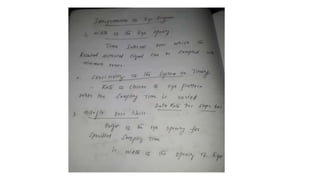 Interpretation of Eye Diagram
1. Width of the Eye opening
Time Interval over which the
Received signal can be sampled with
minimum error.
2. Sensitivity of the System to Timing
- Rate of Closure of eye pattern
when the Sampling Time is varied
Data Rate
3. Margin over Noise
Height of the eye opening for
Specified Sampling Time
Width of the opening of Eye